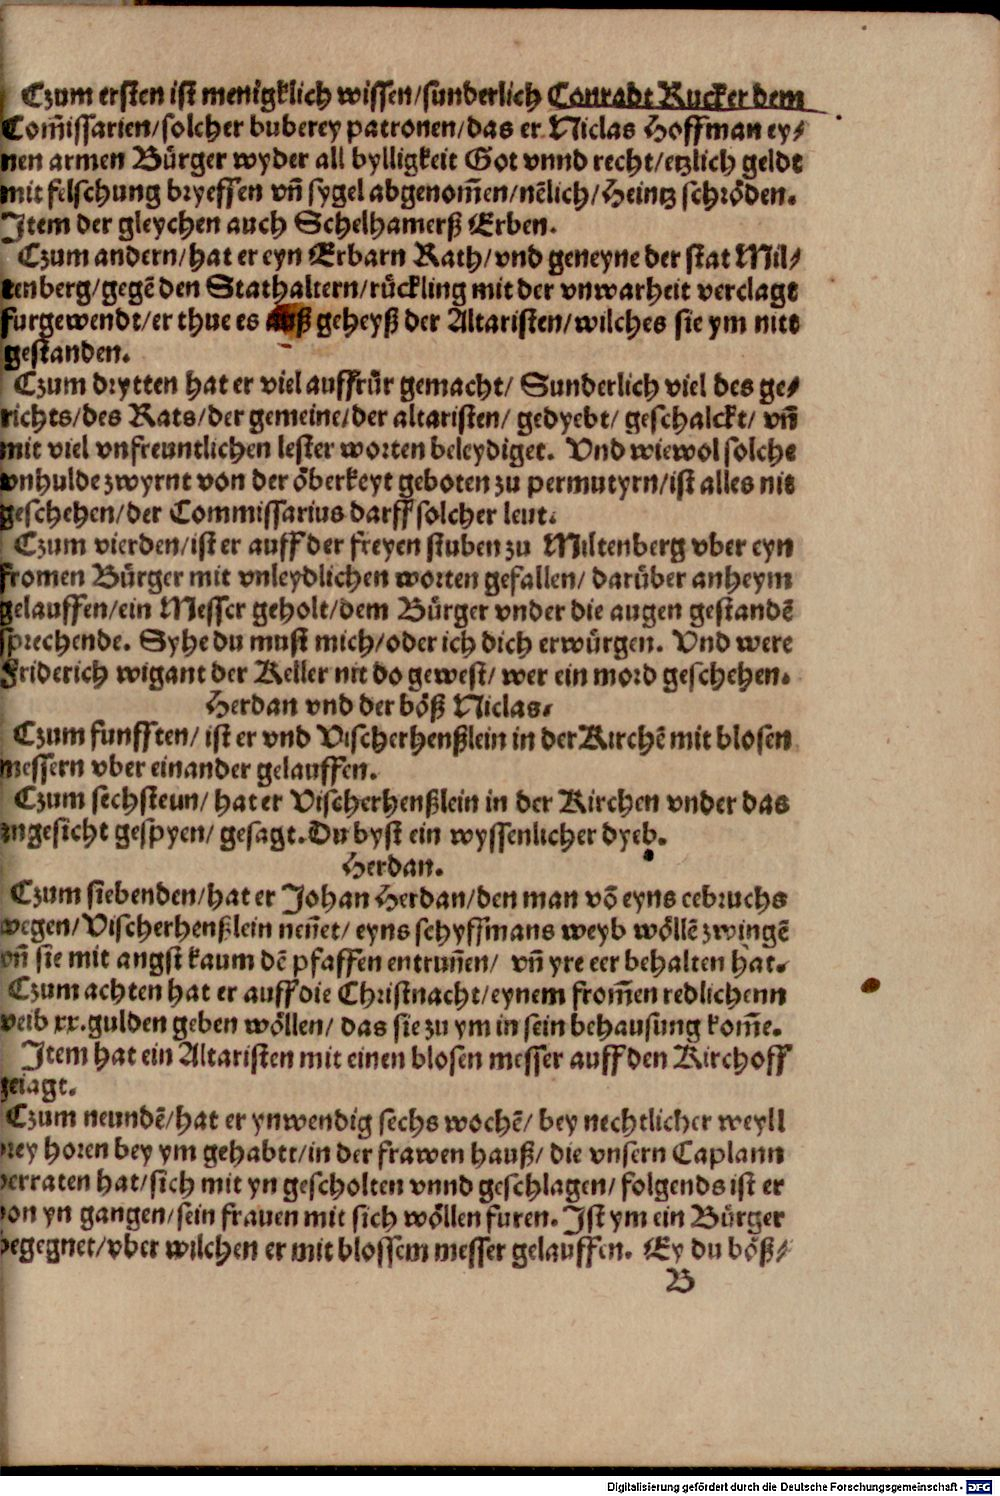 Czum ersten ist menigklich wissen/sunderlich Conradt Rucker dem
Com̃issarien/solcher buberey patronen/das er Niclas Hoffman ey/
nen armen Bürger wyder all bylligkeit Got vnnd recht/etzlich geldt
mit felschung bryeffen vñ sygel abgenom̃en/nẽlich/Heintz schröden.
Item der gleychen auch Schelhamerß Erben.
Czum andern/hat er eyn Erbarn Rath/vnd geneyne der stat Mil/
tenberg/gegẽ den Stathaltern/rückling mit der vnwarheit verclagt
furgewendt/er thue es auß geheyß der Altaristen/wilches sie ym nitt
gestanden.
Czum drytten hat er viel auffrür gemacht/ Sunderlich viel des ge/
richts/des Rats/der gemeine/der altaristen/ gedyebt/ geschalckt/ vñ
mit viel vnfreuntlichen lester worten beleydiget. Vnd wiewol solche
vnhulde zwyrnt von der öberkeyt geboten zu permutyrn/ist alles nit
geschehen/der Commissarius darff solcher leut.
Czum vierden/ist er auff der freyen stuben zu Miltenberg vber eyn
fromen Bürger mit vnleydlichen worten gefallen/ darüber anheym
gelauffen/ein Messer geholt/dem Bürger vnder die augen gestandẽ
sprechende. Syhe du must mich/oder ich dich erwürgen. Vnd were
Friderich wigant der Keller nit do gewest/ wer ein mord geschehen.
Herdan vnd der böß Niclas.
Czum funfften/ ist er vnd Vischerhenßlein in der Kirchẽ mit blosen
messern vber einander gelauffen.
Czum sechsteun/ hat er Vischerhenßlein in der Kirchen vnder das
angesicht gespyen/ gesagt. Du byst ein wyssenlicher dyeb.
Herdan.
Czum siebenden/hat er Johan Herdan/den man võ eyns eebruchs
wegen/Vischerhenßlein neñet/ eyns schyffmans weyb wöllẽ zwingẽ
vñ sie mit angst kaum dẽ pfaffen entruñen/ vñ yre eer behalten hat.
Czum achten hat er auff die Christnacht/eynem from̃en redlichenn
weib xx.gulden geben wöllen/ das sie zu ym in sein behausung kom̃e.
Item hat ein Altaristen mit einen blosen messer auff den Kirchoff
geiagt.
Czum neundẽ/hat er ynwendig sechs wochẽ/ bey nechtlicher weyll
drey horen bey ym gehabtt/in der frawen hauß/ die vnsern Caplann
verraten hat/sich mit yn gescholten vnnd geschlagen/ folgends ist er
von yn gangen/sein frauen mit sich wöllen furen. Ist ym ein Bürger
begegnet/vber wilchen er mit blossem messer gelauffen. Ey du böß/
B
Digitalisierung gefördert durch die Deutsche Forschungsgemeinschaft - DFG